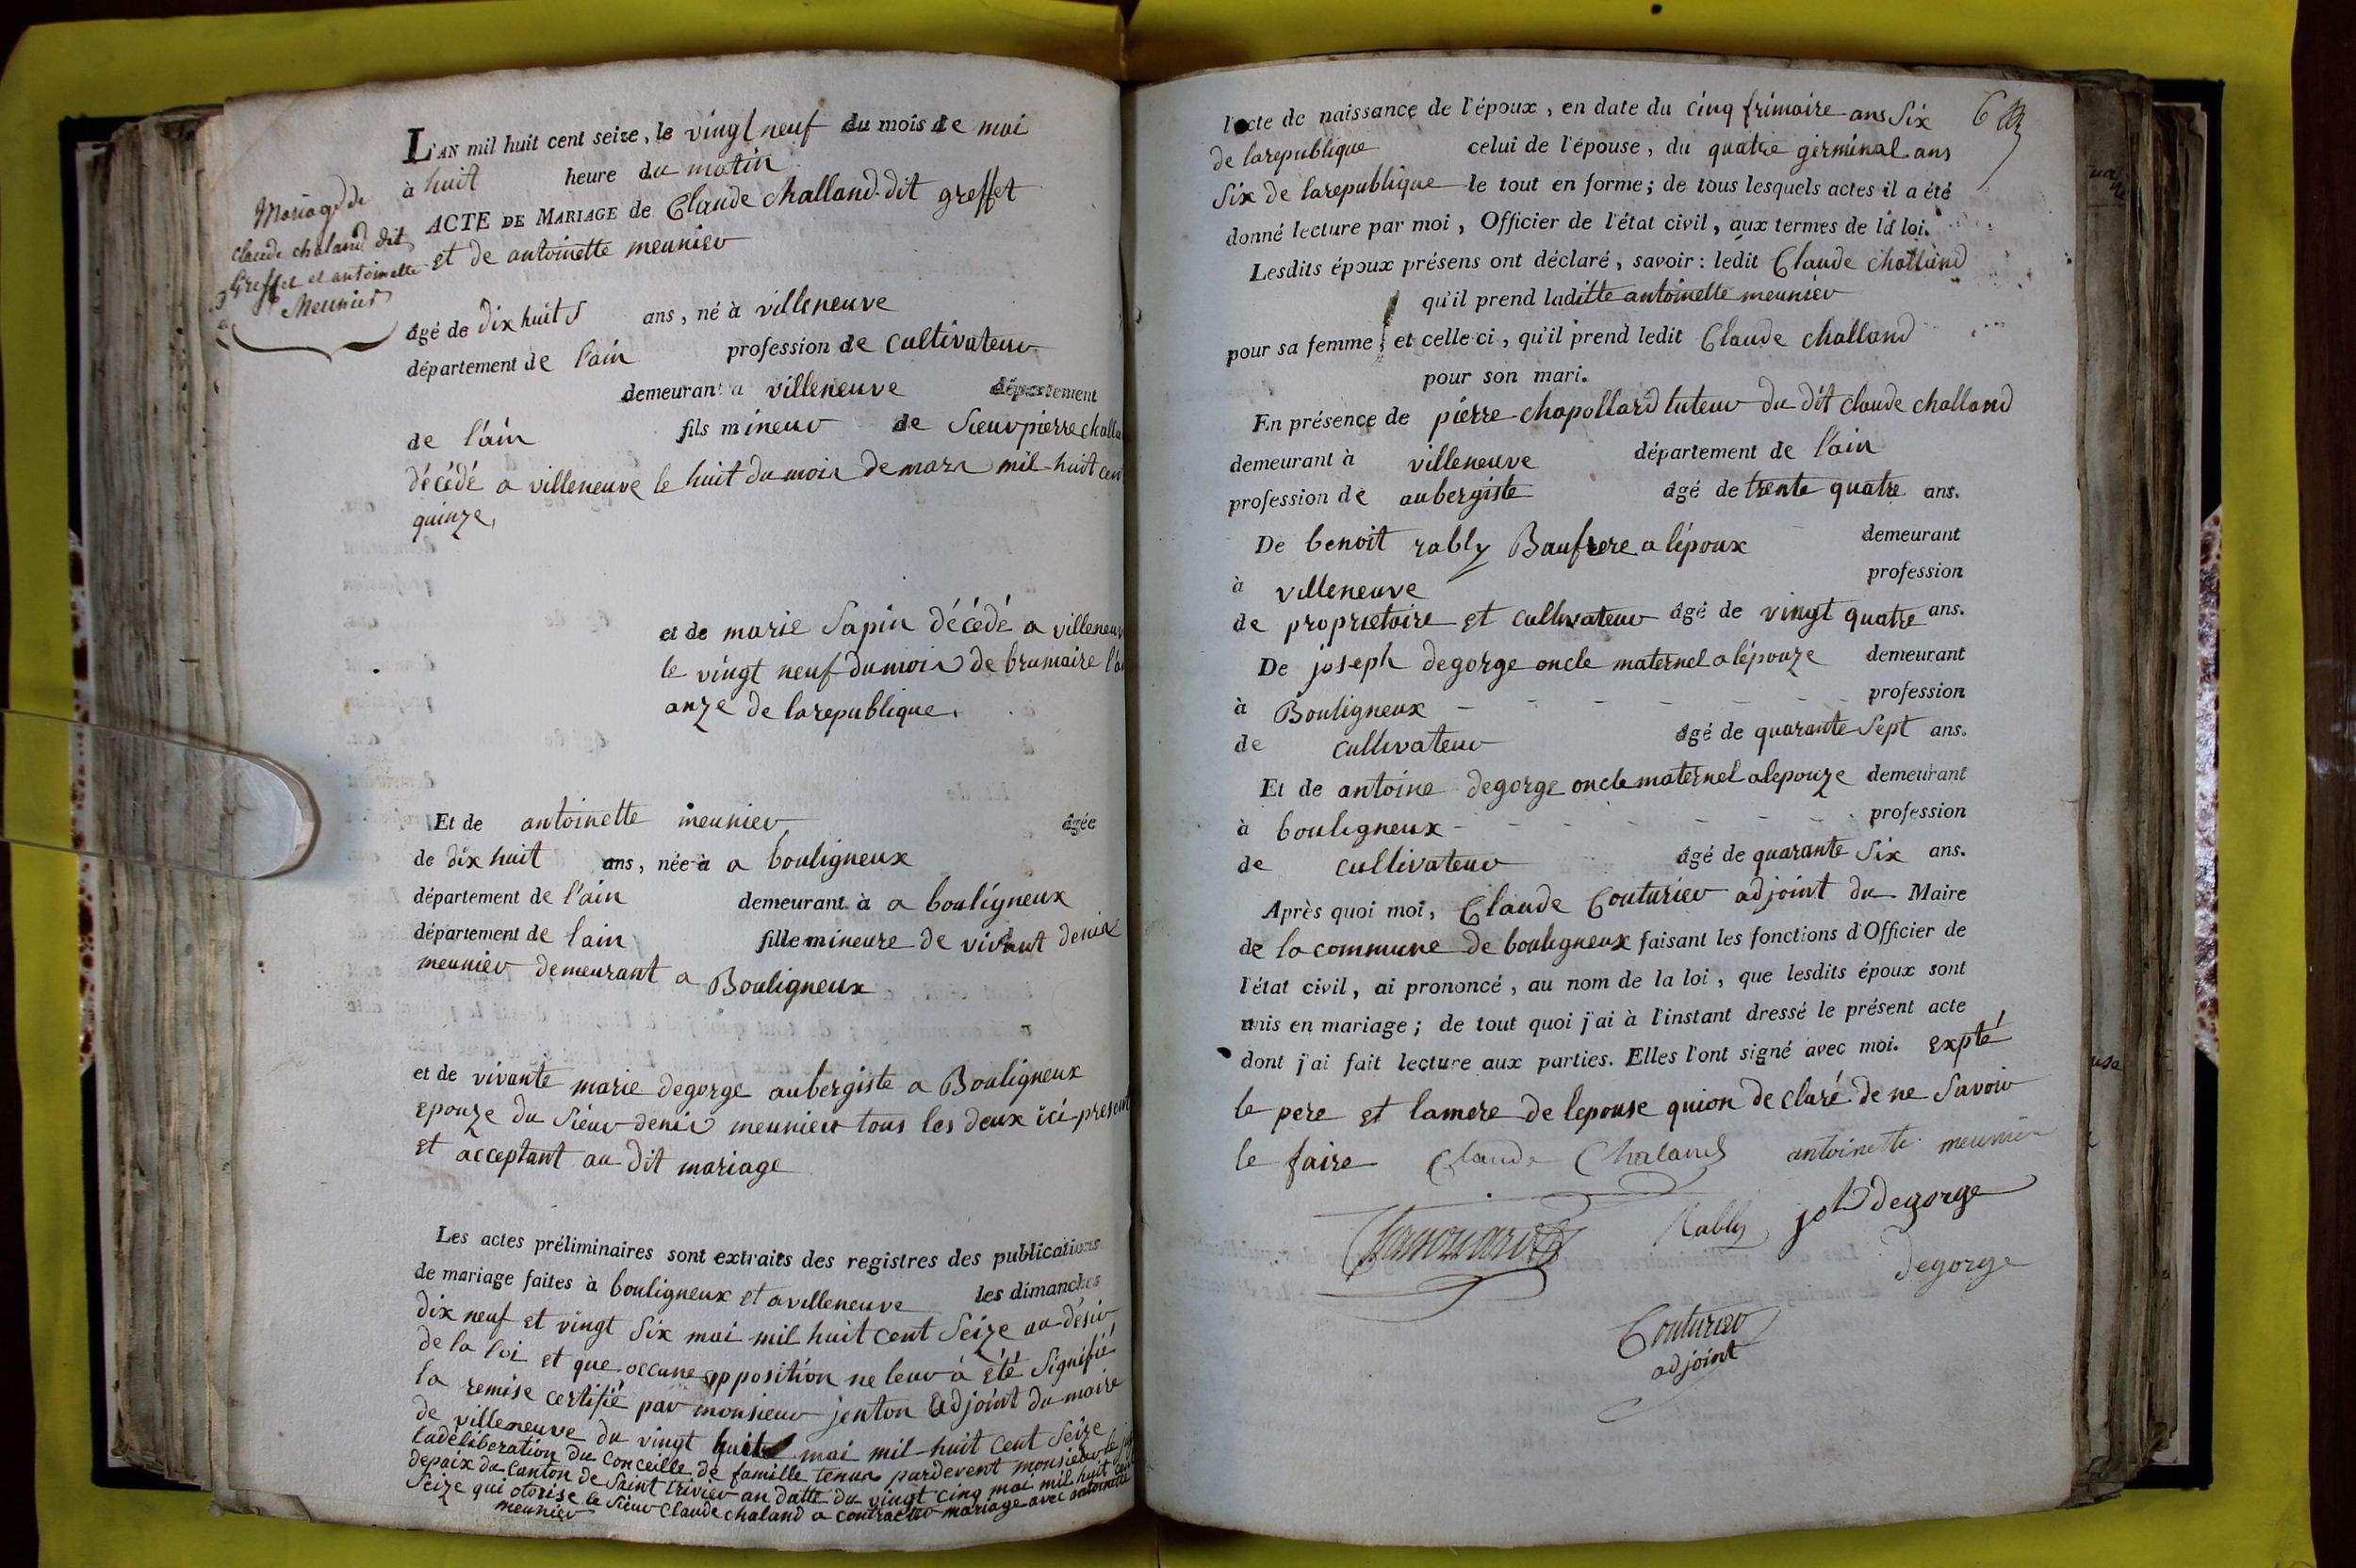 Mariage de
Claude chaland dit
Greffet et antoinette
Meunier
L'AN mil huit cent seize, le vingt neuf du mois de mai
à huit heure du matin
ACTE DE MARIAGE de Claude challand dit greffet
et de antoinette meunier
âgé de dix huit ans, né à villeneuve
département de l'ain profession de cultivateur
demeurant a villeneuve département
de l'ain fils mineur de Sieur pierre challa
décédé a villeneuve le huit du mois de mars mil huit cent
quinze,
et de marie Sapin décédé a villeneuv
le vingt neuf du mois de brumaire l'an
onze de la republique.
Et de antoinette meunier âgée
de dix huit ans, née à a bouligneux
département de l'ain demeurant à a bouligneux
département de lain fille mineure de vivant denis
meunier demeurant a Bouligneux
et de vivante marie degorge aubergiste a Bouligneux
epouze du Sieur denis meunier tous les deux ici present
et acceptant au dit mariage
Les actes préliminaires sont extraits des registres des publications
de mariage faites à bouligneux et a villeneuve les dimanches
dix neuf et vingt Six mai mil huit cent Seize au désir
de la loi et que occune opposition ne leur à été Signifié
la remise certifié par monsieur jenton adjoint du maire
de villeneuve du vingt huit mai mil huit cent Seize
la délibération du conceille de famille tenue pardevent monsieur le ju
depaix du canton de Saint trivier an datte du vingt cinq mai mil huit cent
Seize qui otorise le Sieur Claude chaland a contracter mariage avec antoinette
meunier
l'acte de naissance de l'époux, en date du cinq frimaire ans Six
de la republique celui de l'épouse, du quatre germinal ans
Six de la republique le tout en forme; de tous lesquels actes il a été
donné lecture par moi, Officier de l'état civil, aux termes de la loi.
Lesdits époux présens ont déclaré, savoir: ledit Claude challand
qu'il prend laditte antoinette meunier
pour sa femme; et celle-ci, qu'il prend ledit Claude challand
pour son mari.
En présence de pierre chapollard tuteur du dit claude challand
demeurant à villeneuve département de l'ain
profession de aubergiste âgé de trente quatre ans.
De benoit rably Baufrere a lépoux demeurant
à villeneuve profession
de proprietaire et cultivateur âgé de vingt quatre ans.
De joseph degorge oncle maternel a lépouze demeurant
à Bouligneux profession
de cultivateur âgé de quarante Sept ans.
Et de antoine degorge oncle maternel a lepouze demeurant
à bouligneux profession
de cultivateur âgé de quarante Six ans.
Après quoi moi, Claude Couturier adjoint du Maire
de la commune de bouligneux faisant les fonctions d'Officier de
l'état civil, ai prononcé, au nom de la loi, que lesdits époux sont
unis en mariage; de tout quoi j'ai à l'instant dressé le présent acte
dont j'ai fait lecture aux parties. Elles l'ont signé avec moi. expté
le pere et lamere de lepouse quion declaré de ne Savoir
le faire Claude Chaland antoinette meunier
Rably joh degorge
degorge
Couturier
adjoint